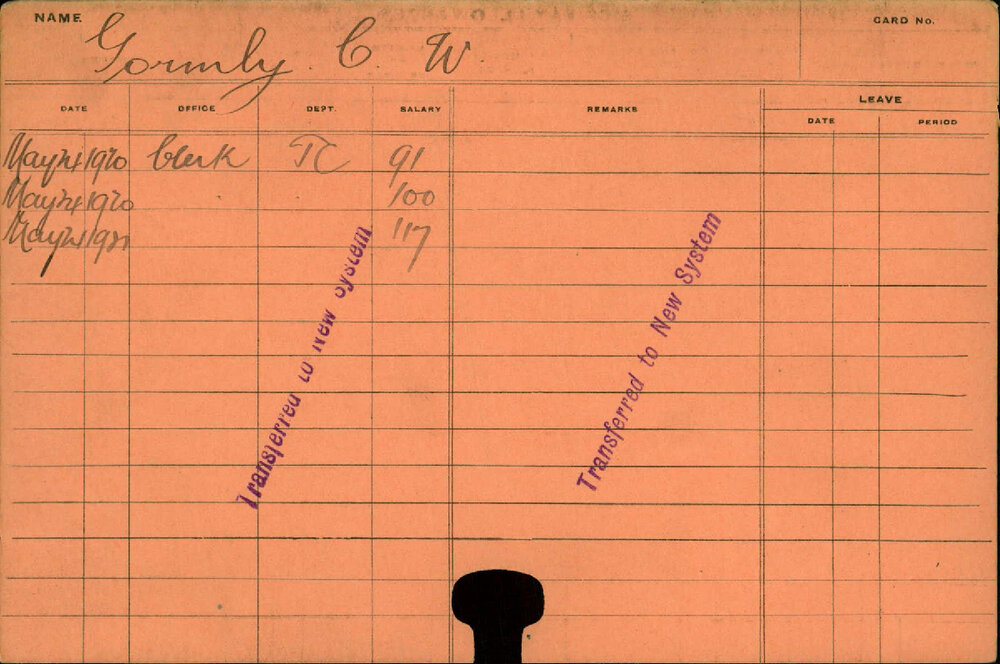 NAME
CARD No.
Gormly C. W.
DATE OFFICE DEPT. SALARY REMARKS LEAVE
DATE PERIOD
May 24 1920 Clerk TC 91
May 24 1920 100
May 1921 117
Transferred to New System
Transferred to New System